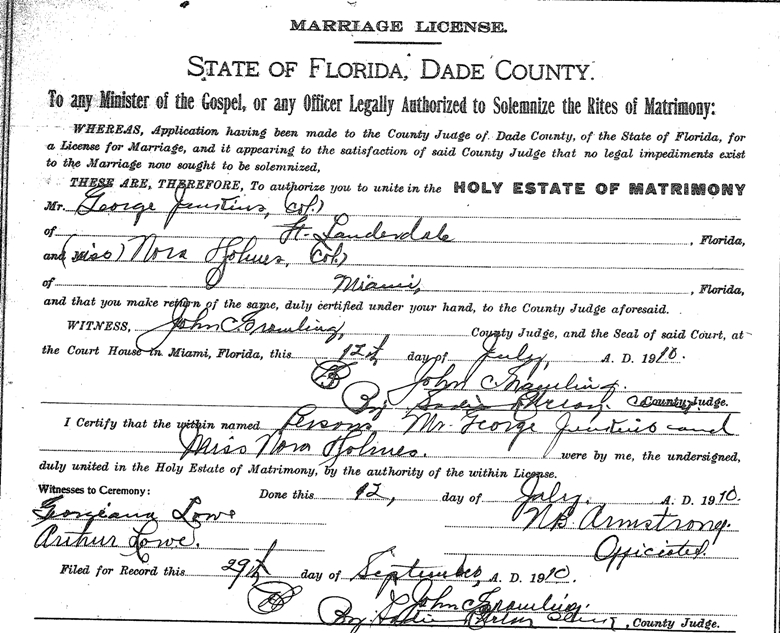 MARRIAGE LICENSE.
STATE OF FLORIDA, DADE COUNTY.
To any Minister of the Gospel, or any Officer Legally Authorized to Solemnize the Rites of Matrimony:
WHEREAS, Application having been made to the County Judge of Dade County, of the State of Florida, for
a License for Marriage, and it appearing to the satisfaction of said County Judge that no legal impediments exist
to the Marriage now sought to be solemnized,
THESE ARE, THEREFORE, To authorize you to unite in the HOLY ESTATE OF MATRIMONY
Mr. George Jenkins, (Col.)
of Ft. Lauderdale, Florida,
and (Miss) Nora Holmes, (Col.)
of Miami, Florida,
and that you make return of the same, duly certified under your hand, to the County Judge aforesaid.
WITNESS, John C Gramling, County Judge, and the Seal of said Court, at
the Court House in Miami, Florida, this 12th day of July, A. D. 1910.
John C Gramling.
By Sadie County Judge.
I Certify that the within named Persons Mr. George Jenkins and
Miss Nora Holmes. were by me, the undersigned,
duly united in the Holy Estate of Matrimony, by the authority of the within License.
Witnesses to Ceremony: Done this 12, day of July. A. D. 1910.
Georgeana Lowe NB Armstrong.
Arthur Lowe. Officiated.
Filed for Record this 29th day of September, A. D. 1910.
John C Gramling.
By Sadie County Judge.